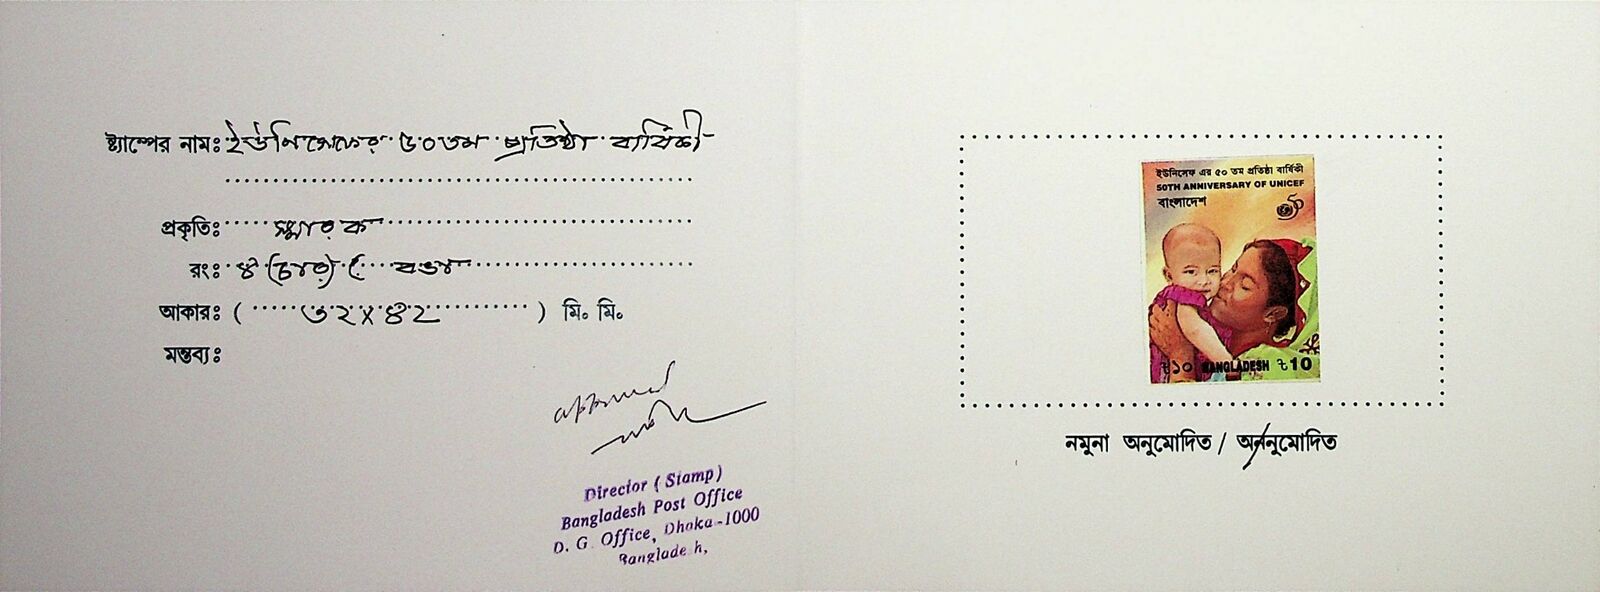 ষ্ট্যাম্পের নামঃ ইউনিসেফের ৫০তম প্রতিষ্ঠা বার্ষিকী
প্রকৃতিঃ স্মারক
রংঃ ৪ (চার) রঙা
আকারঃ ( ৩২x৪২ ) মি০ মি০
মন্তব্যঃ
approved
Director (Stamp)
Bangladesh Post Office
D. G. Office, Dhaka-1000
Banglade h,
ইউনিসেফ এর ৫০ তম প্রতিষ্ঠা বার্ষিকী
50TH ANNIVERSARY OF UNICEF
বাংলাদেশ
50
৳১০ BANGLADESH ৳10
নমুনা অনুমোদিত / অননুমোদিত